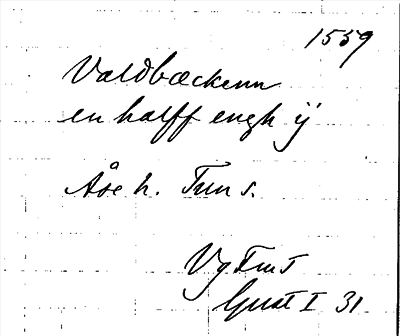 1559
Valdbæckenn
en halff engh ij
Åse h. Tun s.
Vg
Gust I 31